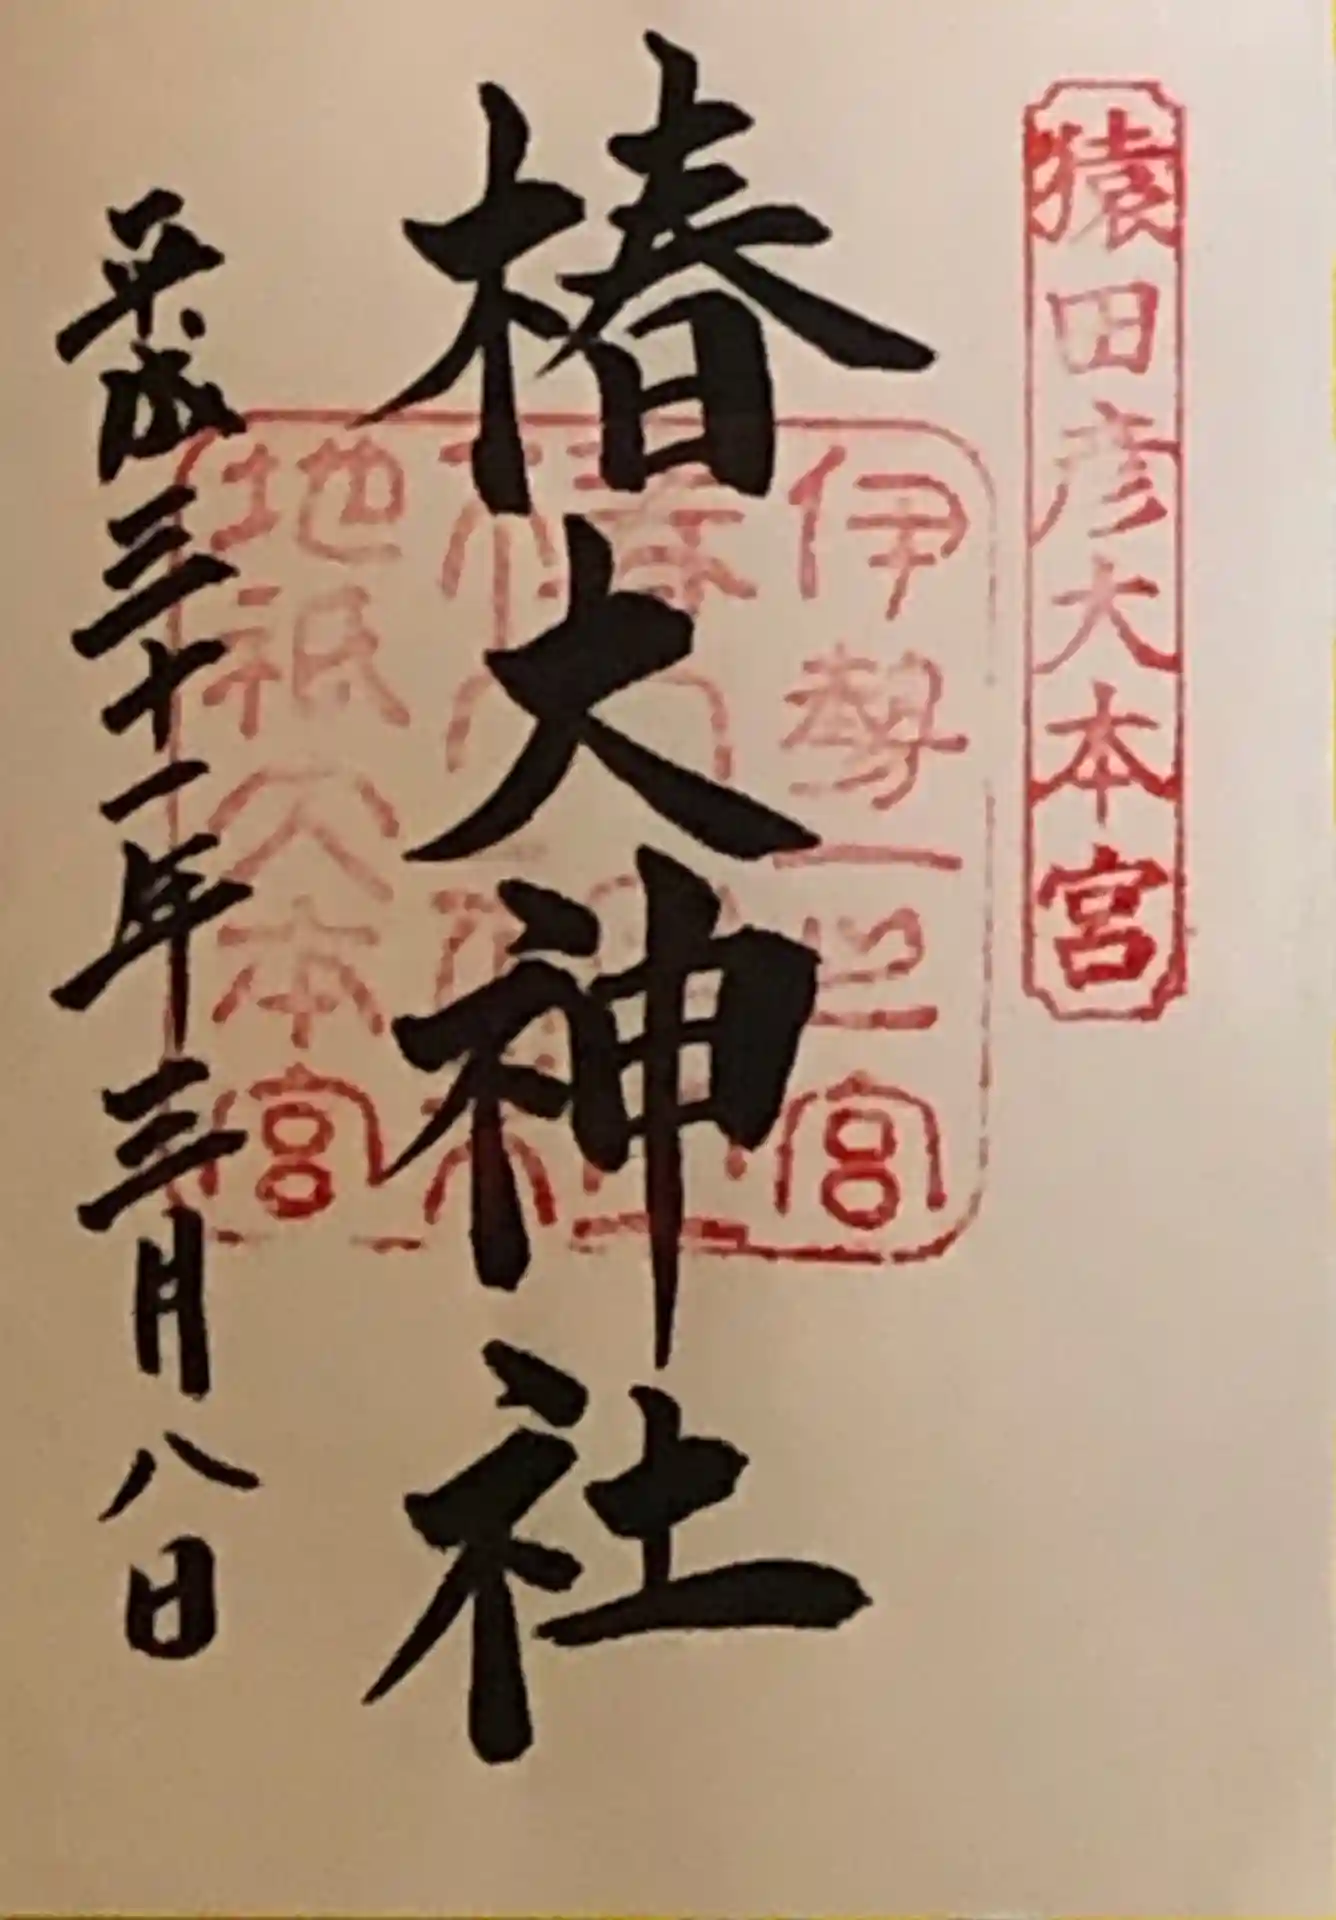 猿田彦大本宮
伊勢一之宮
椿大神社
地祇大本宮
椿大神社
平成三十一年三月八日